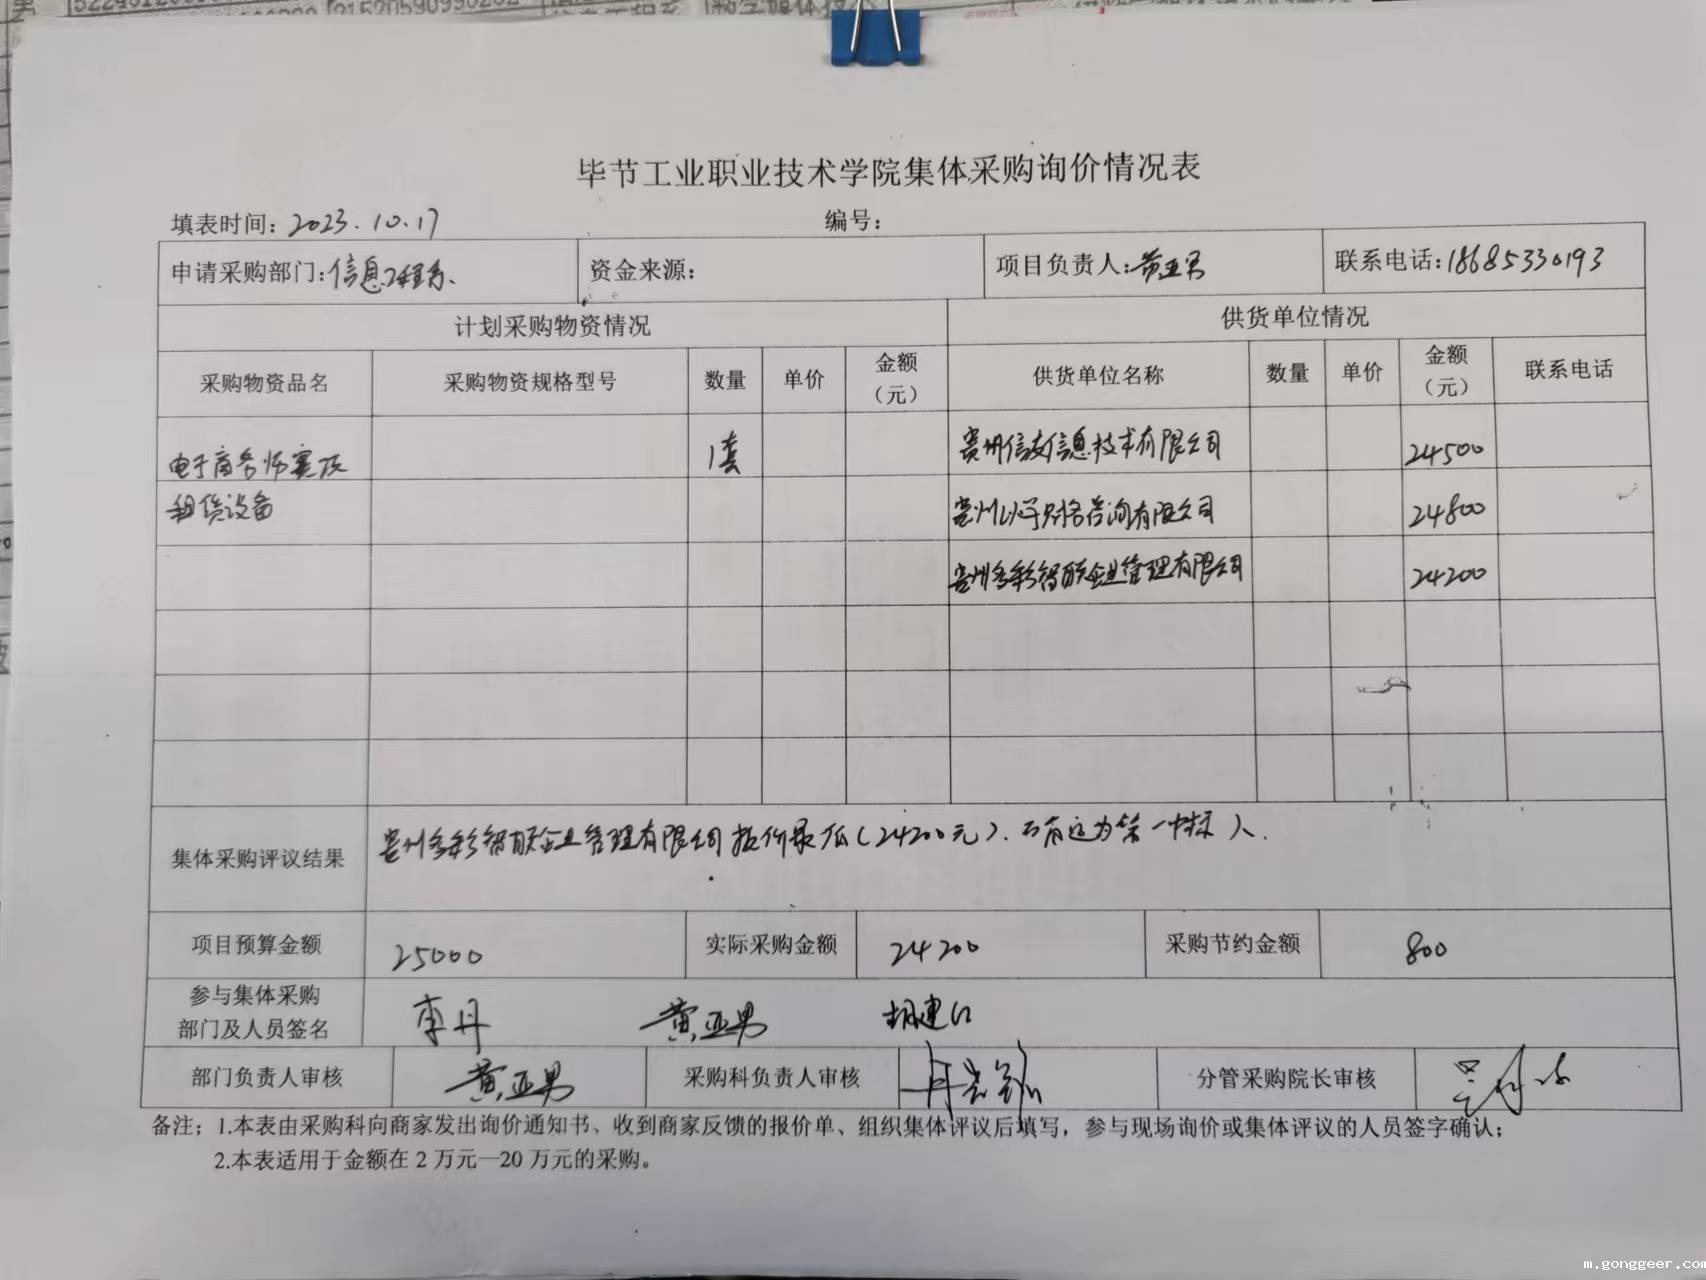 毕节工业职业技术学院集体采购询价情况表
填表时间: 2023.10.17 编号:
申请采购部门:信息工程系 资金来源: 项目负责人:黄亚男 联系电话:18685330193
计划采购物资情况 供货单位情况
采购物资品名 采购物资规格型号 数量 单价 金额（元） 供货单位名称 数量 单价 金额（元） 联系电话
电子商务师赛项 1套 贵州信友信息技术有限公司 24500
租赁设备 财务咨询有限公司 24800
贵州多彩智联企业管理有限公司 24200
集体采购评议结果 贵州多彩智联企业管理有限公司报价最低(24200元). 第一中标人.
项目预算金额 25000 实际采购金额 24200 采购节约金额 800
参与集体采购
部门及人员签名 李丹 黄亚男 胡建
部门负责人审核 黄亚男 采购科负责人审核 分管采购院长审核
备注；1.本表由采购科向商家发出询价通知书、收到商家反馈的报价单、组织集体评议后填写，参与现场询价或集体评议的人员签字确认；
2.本表适用于金额在2万元—20万元的采购。
m.gonggeer.com